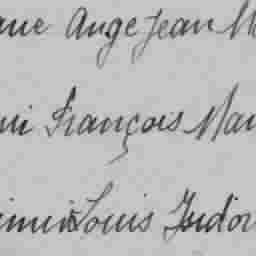 Ange Jean M
François Mar
Louis Isidor